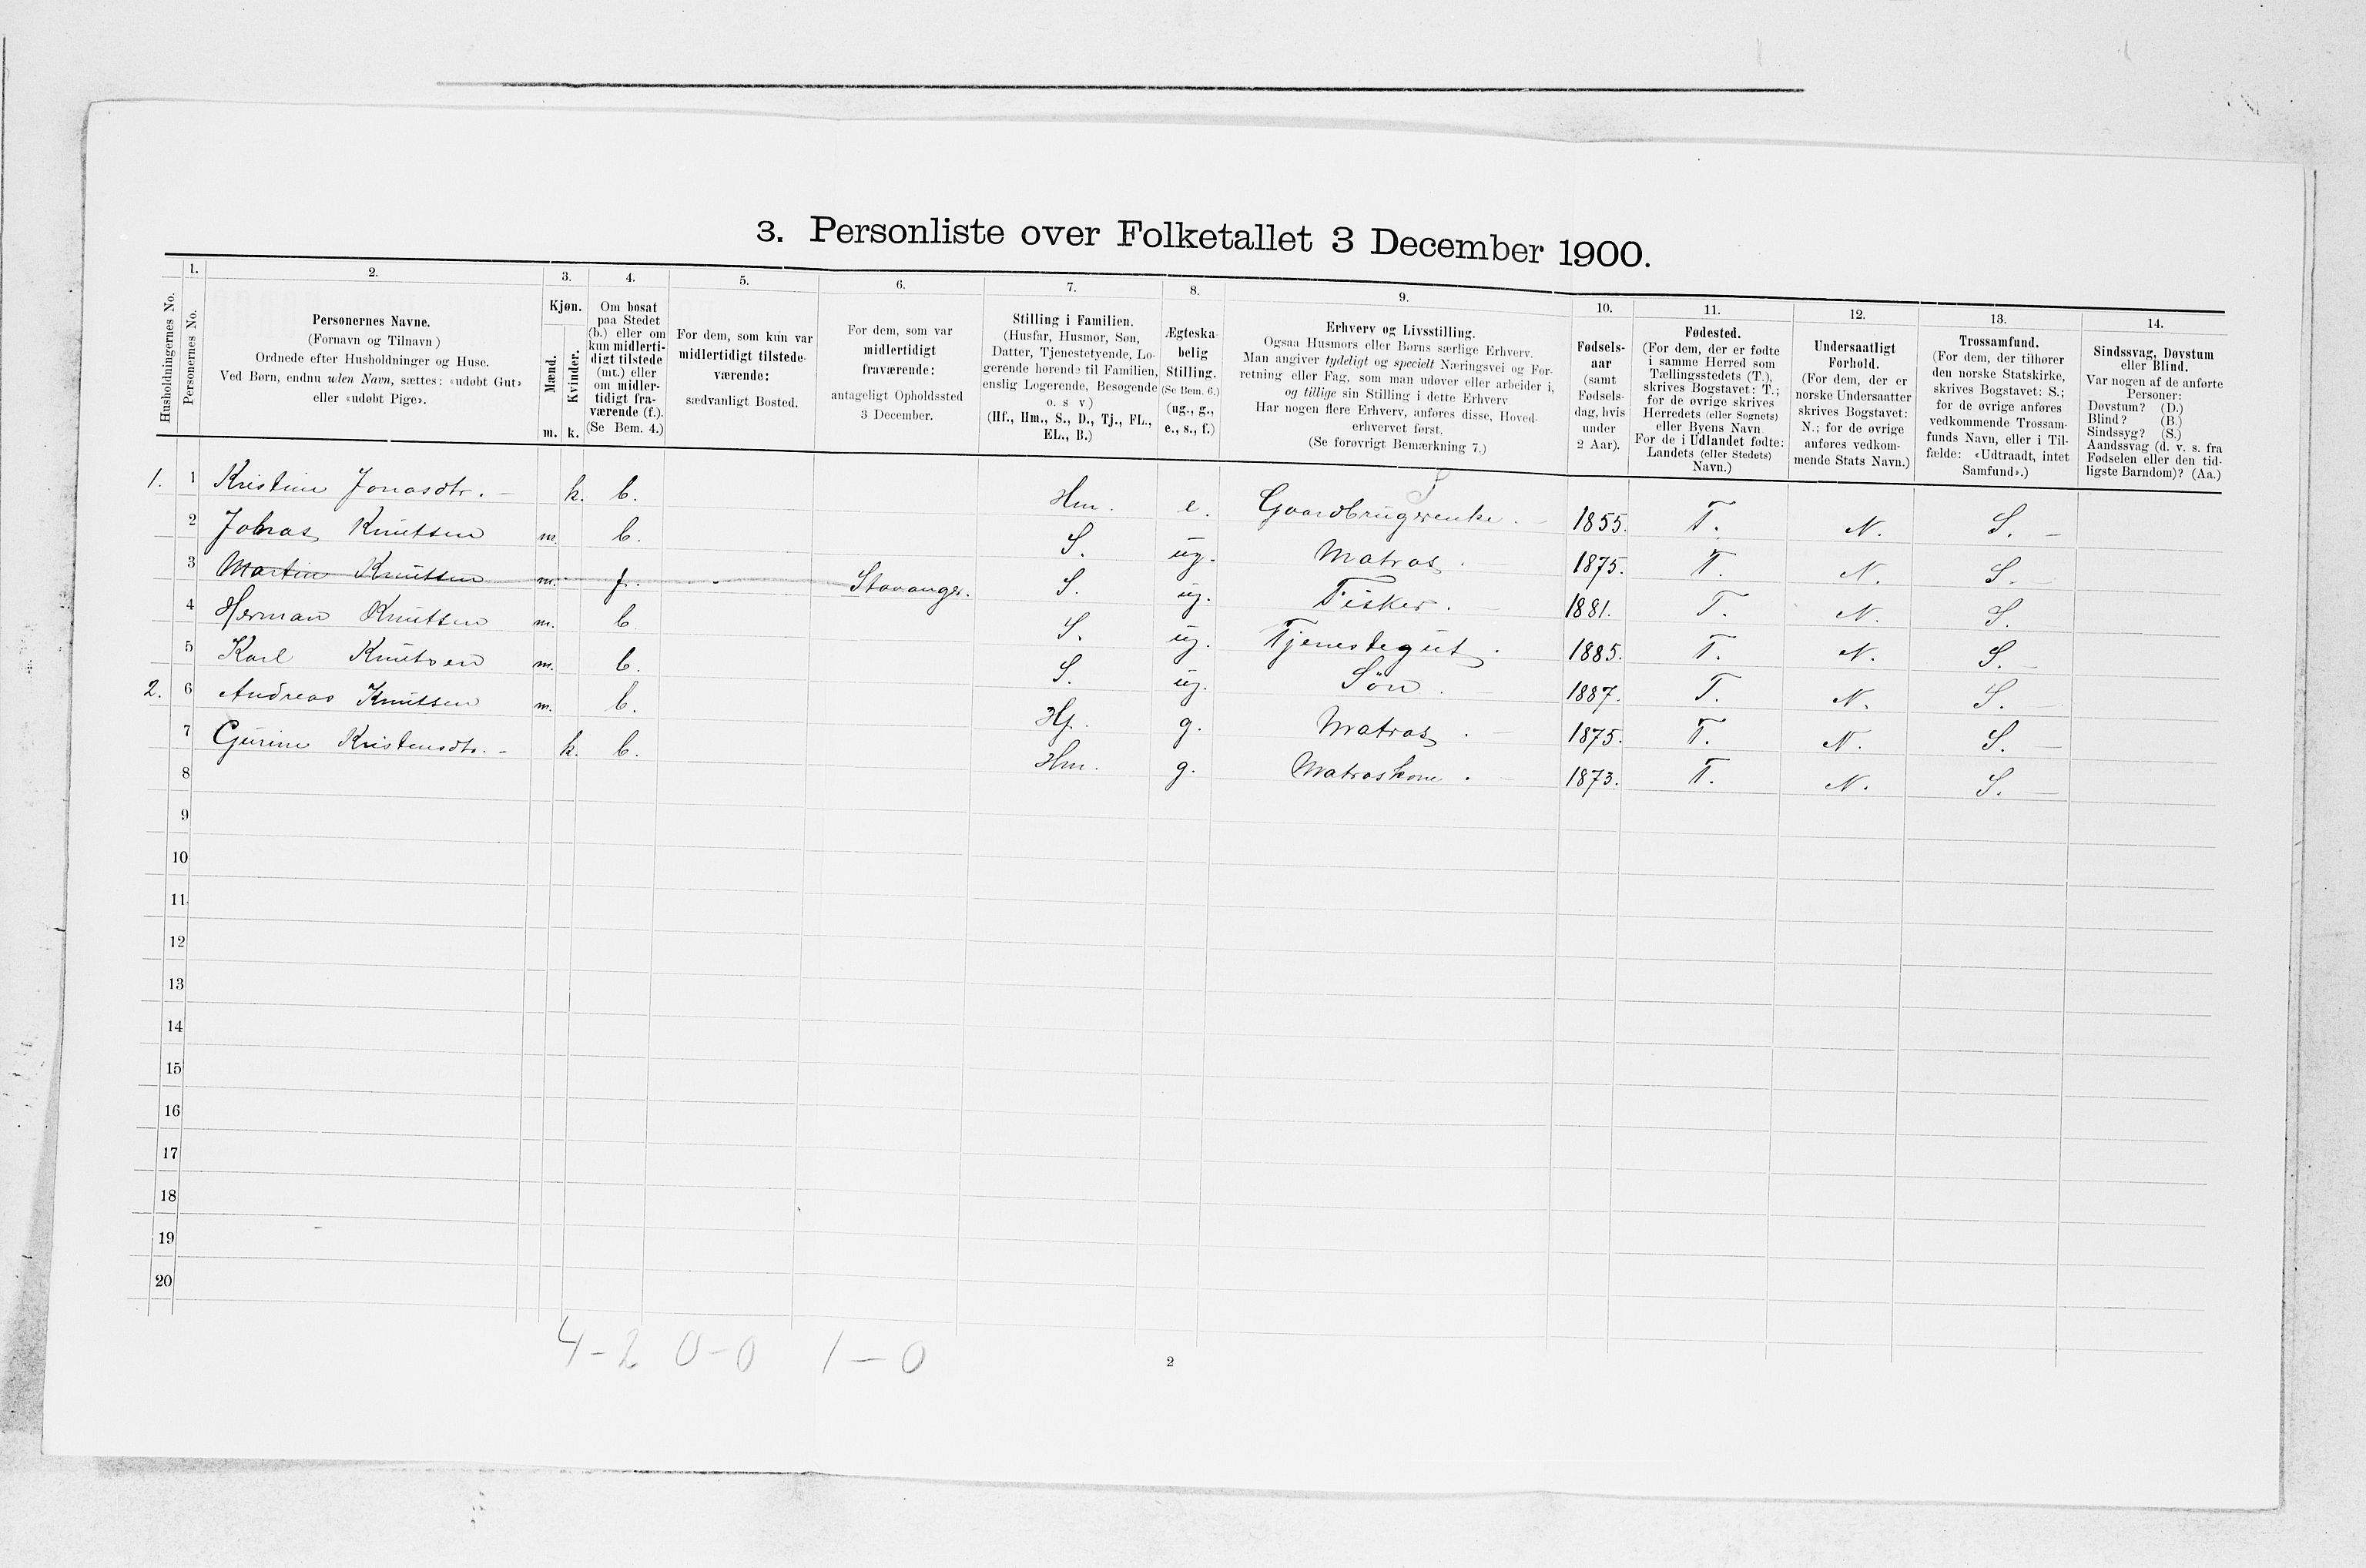 3. Personliste over Folketallet 3 December 1900.
1. 2. 3. 4. 5. 6. 7. 8. 9. 10. 11. 12. 13. 14.
Husholdningernes No.
Personernes No.
Personernes Navne.
(Fornavn og Tilnavn)
Ordnede efter Husholdninger og Huse.
Ved Børn, endnu uden Navn, sættes: «udøbt Gut»
eller «udøbt Pige».
Kjøn.
Mænd.
Kvinder.
m. k.
Om bosat
paa Stedet
(b.) eller om
kun midlerti-
digt tilstede
(mt.) eller
om midler-
tidigt fra-
værende (f.).
(Se Bem. 4.)
For dem, som kun var
midlertidigt tilstede-
værende:
sædvanligt Bosted.
For dem, som var
midlertidigt
fraværende:
antageligt Opholdssted
3 December.
Stilling i Familien.
(Husfar, Husmor, Søn,
Datter, Tjenestetyende, Lo-
gerende hørende til Familien,
enslig Logerende, Besøgende
o. s. v.)
(Hf., Hm., S., D., Tj., FL.,
EL., B.)
Ægteska-
belig
Stilling.
(Se Bem. 6.)
(ug., g.,
e., s., f.)
Erhverv og Livsstilling.
Ogsaa Husmors eller Børns særlige Erhverv.
Man angiver tydeligt og specielt Næringsvei og For-
retning eller Fag, som man udøver eller arbeider i,
og tillige sin Stilling i dette Erhverv
Har nogen flere Erhverv, anføres disse, Hoved-
erhvervet først.
(Se forøvrigt Bemærkning 7.)
Fødsels-
aar
(samt
Fødsels-
dag, hvis
under
2 Aar).
Fødested.
(For dem, der er fødte
i samme Herred som
Tællingsstedets (T.),
skrives Bogstavet: T.;
for de øvrige skrives
Herredets (eller Sognets)
eller Byens Navn
For de i Udlandet fødte:
Landets (eller Stedets)
Navn.)
Undersaatligt
Forhold.
(For dem, der er
norske Undersaatter
skrives Bogstavet:
N.; for de øvrige
anføres vedkom-
mende Stats Navn.)
Trossamfund.
(For dem, der tilhører
den norske Statskirke,
skrives Bogstavet: S.;
for de øvrige anføres
vedkommende Trossam-
funds Navn, eller i Til-
fælde: «Udtraadt, intet
Samfund».)
Sindssvag, Døvstum
eller Blind.
Var nogen af de anførte
Personer:
Døvstum? (D.)
Blind? (B.)
Sindssyg? (S.)
Aandssvag (d. v. s. fra
Fødselen eller den tid-
ligste Barndom)? (Aa.)
1. 1 Kristine Jonasdtr. - k. b. Hm. e. Gaardbrugerenke. - 1855. T. N. S. -
2 Johas Knutsen m. b. S. ug. Matros. - 1875. T. N. S. -
3 Martin Knutsen m. f. - Stavanger. S. ug. Fisker. - 1881. T. N. S.
4 Herman Knutsen m. b S. ug. Tjenestegut. 1885. T. N. S. -
5 Karl Knutsen m. b. S. ug. Søn. - 1887. T. N. S. -
2. 6 Andreas Knutsen m. b. Hf. g. Matros. - 1875. T. N. S. -
7 Gurine Kristensdtr. - k. b. Hm. g. Matroskone. - 1873. T. N. S. -
8
9
10
11
12
13
14
15
16
17
18
19
20
4-2 0-0 1-0
2